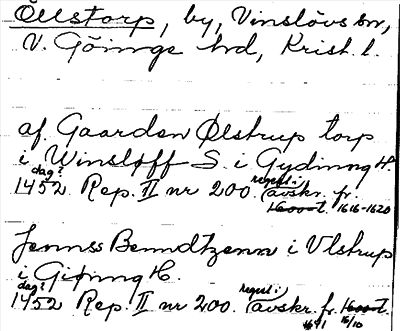 Öllstorp, by, Vinslövs sn,
V. Göinge hd, Krist. l.
af Gaarden Ølstrup torp
i Winsløff S. i Gydinng H.
dag?
regest i
1452 Rep. II nr 200. (avskr. fr.
1600-t. 1616-1620
Jennss Benndtzenn i Vlstrup
i Giønng H.
dag?
regest i
1452 Rep. II nr 200. (avskr. fr. 1600-t.
16/10